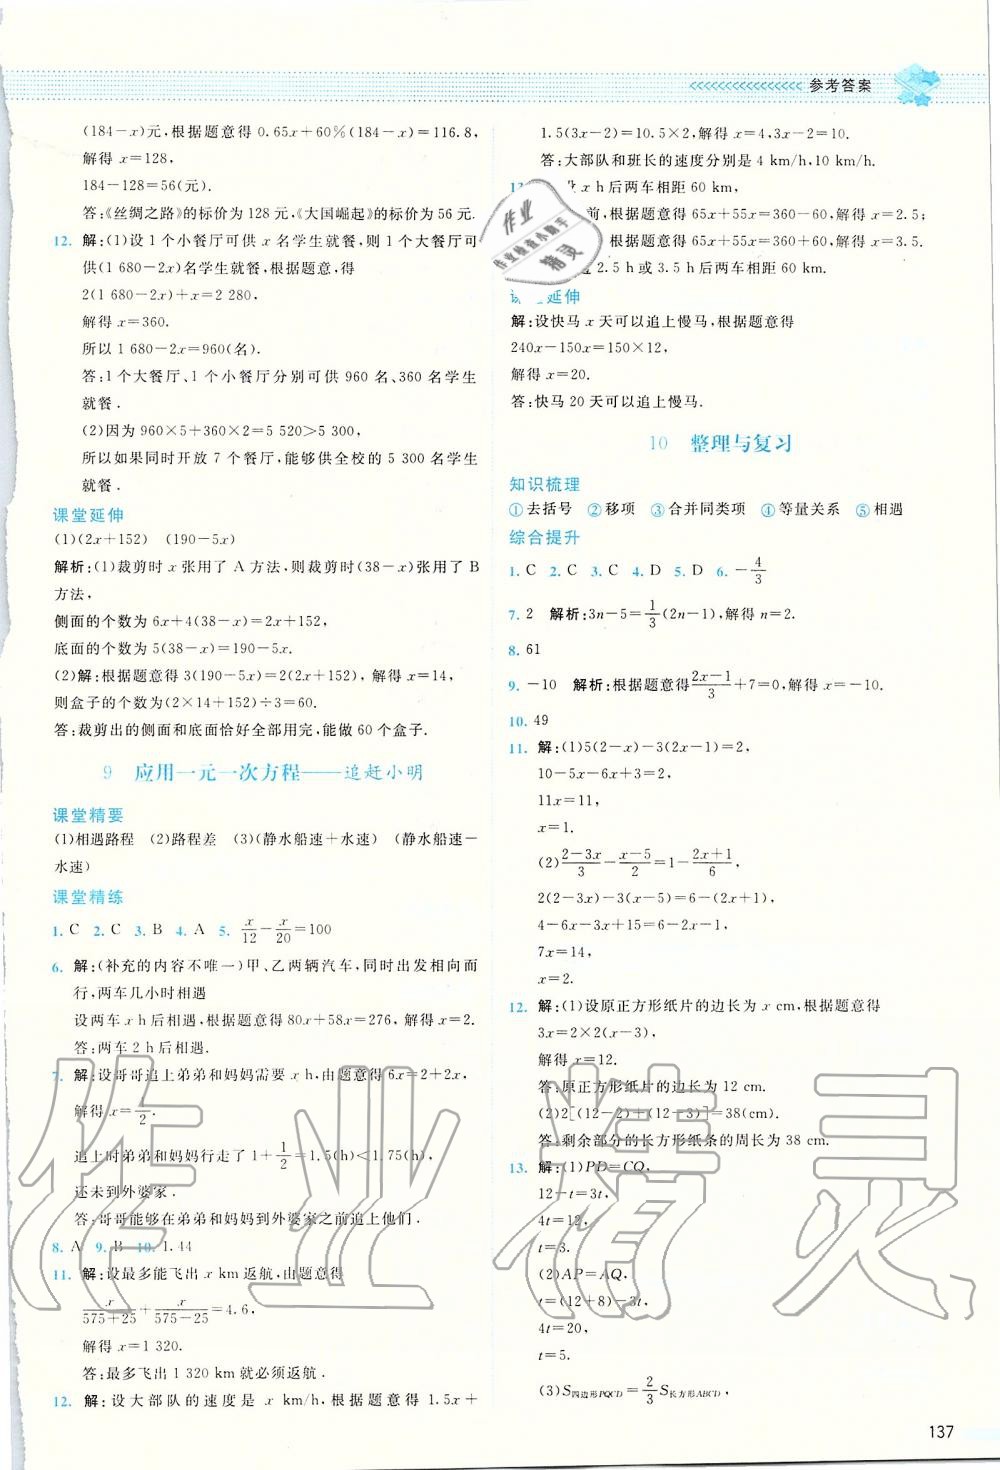 参考答案
(184－x)元,根据题意得 0.65x＋60%(184－x)＝116.8,
解得 x＝128,
184－128＝56(元).
答:《丝绸之路》的标价为 128 元,《大国崛起》的标价为 56 元.
12. 解:(1)设 1 个小餐厅可供 x 名学生就餐,则 1 个大餐厅可
供(1 680－2x)名学生就餐,根据题意,得
2(1 680－2x)＋x＝2 280,
解得 x＝360.
所以 1 680－2x＝960(名).
答:1 个大餐厅、1 个小餐厅分别可供 960 名、360 名学生
就餐.
(2)因为 960×5＋360×2＝5 520＞5 300,
所以如果同时开放 7 个餐厅,能够供全校的 5 300 名学生
就餐.
课堂延伸
(1)(2x＋152) (190－5x)
解析:(1)裁剪时 x 张用了 A 方法,则裁剪时(38－x)张用了 B
方法,
侧面的个数为 6x＋4(38－x)＝2x＋152,
底面的个数为 5(38－x)＝190－5x.
(2)解:根据题意得 3(190－5x)＝2(2x＋152),解得 x＝14,
则盒子的个数为(2×14＋152)÷3＝60.
答:裁剪出的侧面和底面恰好全部用完,能做 60 个盒子.
9 应用一元一次方程——追赶小明
课堂精要
(1)相遇路程 (2)路程差 (3)(静水船速＋水速) (静水船速－
水速)
课堂精练
1. C 2. C 3. B 4. A 5. x/12－x/20＝100
6. 解:(补充的内容不唯一)甲、乙两辆汽车,同时出发相向而
行,两车几小时相遇
设两车 x h 后相遇,根据题意得 80x＋58x＝276,解得 x＝2.
答:两车 2 h 后相遇.
7. 解:设哥哥追上弟弟和妈妈需要 x h,由题意得 6x＝2＋2x,
解得 x＝1/2.
追上时弟弟和妈妈行走了 1＋1/2＝1.5(h)＜1.75(h),
还未到外婆家.
答:哥哥能够在弟弟和妈妈到外婆家之前追上他们.
8. A 9. B 10. 1.44
11. 解:设最多能飞出 x km 返航,由题意得
x/(575＋25)＋x/(575－25)＝4.6,
解得 x＝1 320.
答:最多飞出 1 320 km 就必须返航.
12. 解:设大部队的速度是 x km/h,根据题意得 1.5x＋
1.5(3x－2)＝10.5×2,解得 x＝4,3x－2＝10.
答:大部队和班长的速度分别是 4 km/h,10 km/h.
x h 后两车相距 60 km,
前,根据题意得 65x＋55x＝360－60,解得 x＝2.5;
根据题意得 65x＋55x＝360＋60,解得 x＝3.5.
2.5 h 或 3.5 h 后两车相距 60 km.
延伸
解:设快马 x 天可以追上慢马,根据题意得
240x－150x＝150×12,
解得 x＝20.
答:快马 20 天可以追上慢马.
10 整理与复习
知识梳理
①去括号 ②移项 ③合并同类项 ④等量关系 ⑤相遇
综合提升
1. C 2. C 3. C 4. D 5. D 6. －4/3
7. 2 解析:3n－5＝1/3(2n－1),解得 n＝2.
8. 61
9. －10 解析:根据题意得(2x－1)/3＋7＝0,解得 x＝－10.
10. 49
11. 解:(1)5(2－x)－3(2x－1)＝2,
10－5x－6x＋3＝2,
11x＝11,
x＝1.
(2)(2－3x)/3－(x－5)/2＝1－(2x＋1)/6,
2(2－3x)－3(x－5)＝6－(2x＋1),
4－6x－3x＋15＝6－2x－1,
7x＝14,
x＝2.
12. 解:(1)设原正方形纸片的边长为 x cm,根据题意得
3x＝2×2(x－3),
解得 x＝12.
答:原正方形纸片的边长为 12 cm.
(2)2[(12－2)＋(12－3)]＝38(cm).
答:剩余部分的长方形纸条的周长为 38 cm.
13. 解:(1)PD＝CQ,
12－t＝3t,
4t＝12,
t＝3.
(2)AP＝AQ,
t＝(12＋8)－3t,
4t＝20,
t＝5.
(3)S四边形PQCD＝2/3 S长方形ABCD,
137
作业
作业检查小助手
精灵
作业精灵